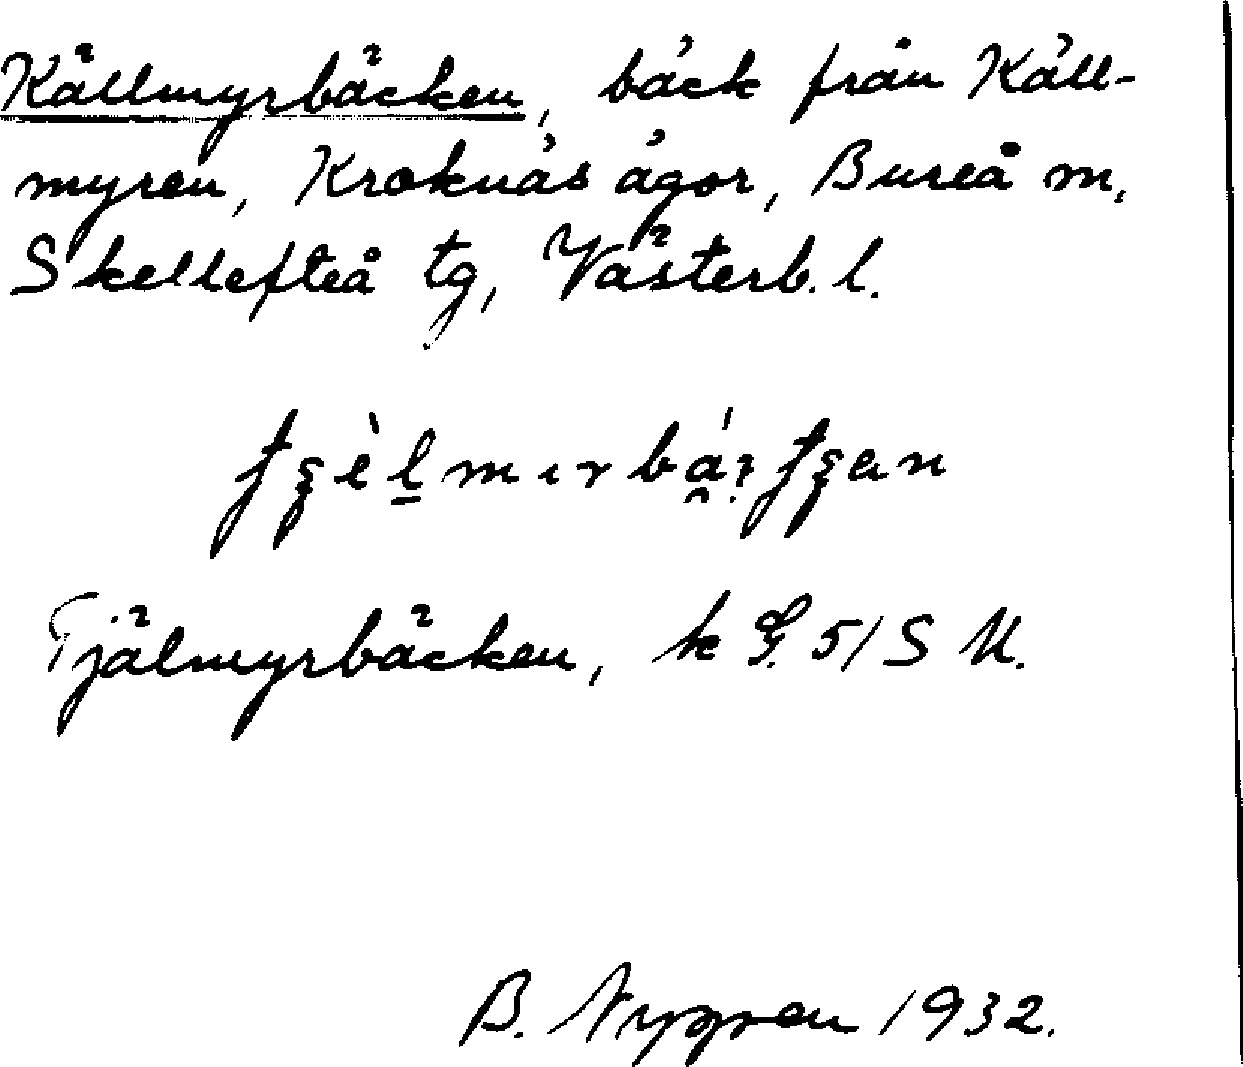 Källmyrbäcken, bäck från Käll-
myren, Kroknäs ägor, Bureå m,
Skellefteå tg, Västerb. l.
Tjälmyrbäcken, k 51 S V.
B. Nygren 1932.